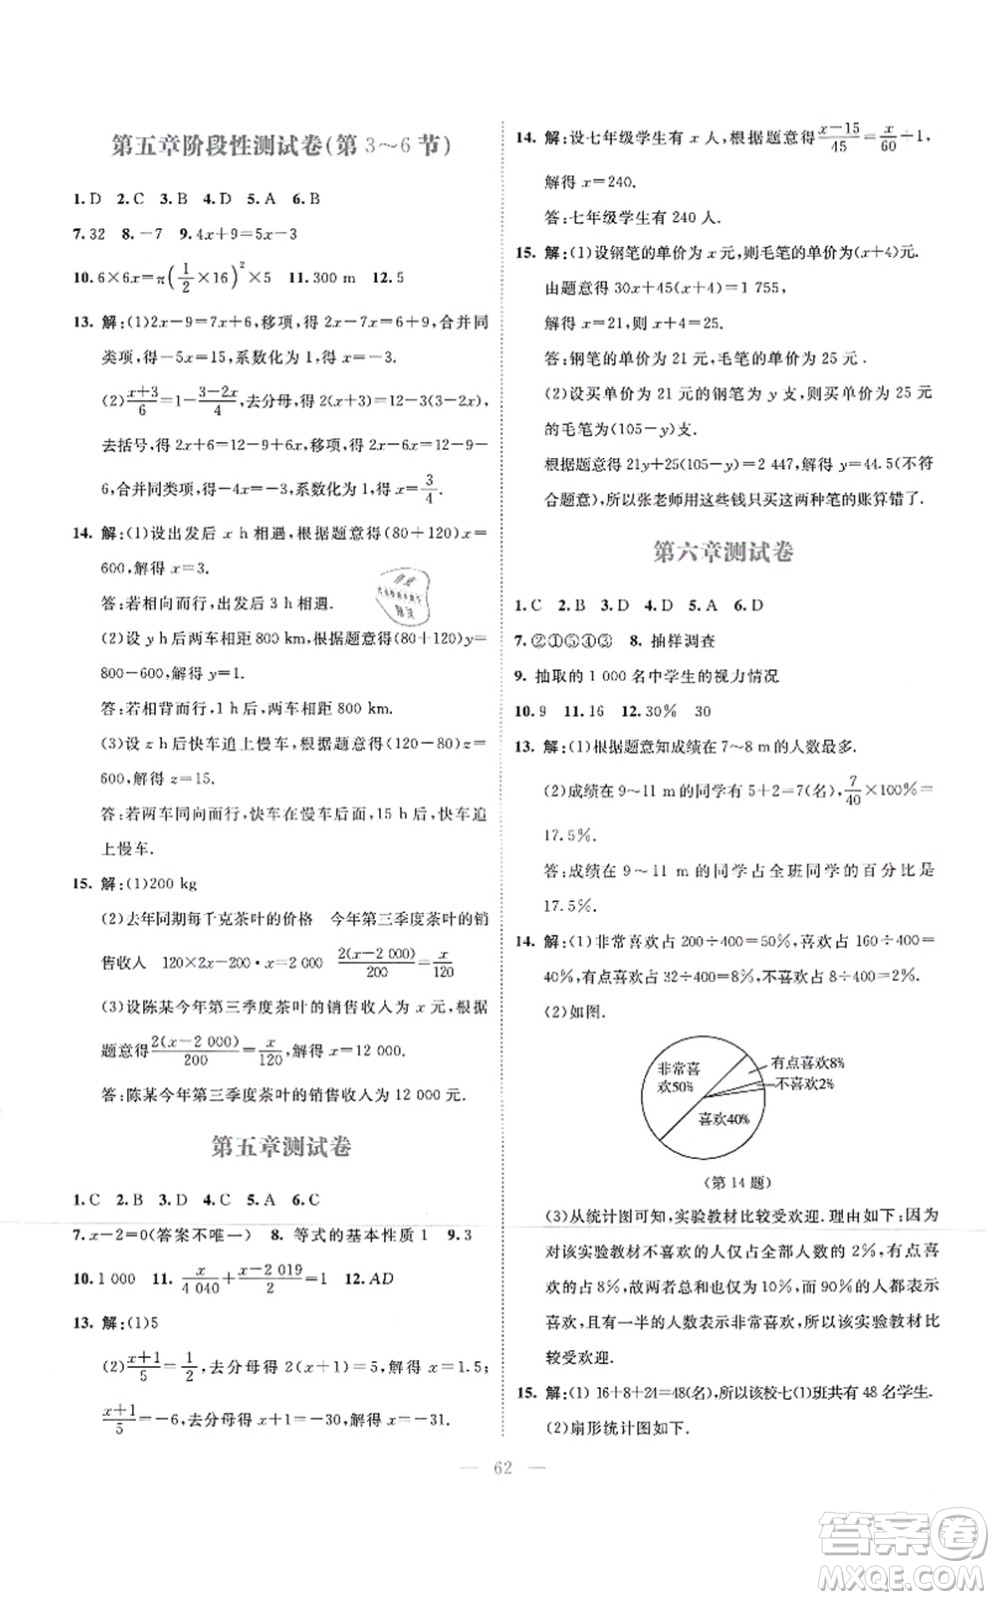 第五章阶段性测试卷(第 3～6 节)
1. D 2. C 3. B 4. D 5. A 6. B
7. 32 8. －7 9. 4x＋9＝5x－3
10. 6×6x＝π(1/2×16)²×5 11. 300 m 12. 5
13. 解:(1)2x－9＝7x＋6,移项,得 2x－7x＝6＋9,合并同
类项,得－5x＝15,系数化为 1,得 x＝－3.
(2)(x＋3)/6＝1－(3－2x)/4,去分母,得 2(x＋3)＝12－3(3－2x),
去括号,得 2x＋6＝12－9＋6x,移项,得 2x－6x＝12－9－
6,合并同类项,得－4x＝－3,系数化为 1,得 x＝3/4.
14. 解:(1)设出发后 x h 相遇,根据题意得(80＋120)x＝
600,解得 x＝3.
答:若相向而行,出发后 3 h 相遇.
(2)设 y h 后两车相距 800 km,根据题意得(80＋120)y＝
800－600,解得 y＝1.
答:若相背而行,1 h 后,两车相距 800 km.
(3)设 z h 后快车追上慢车,根据题意得(120－80)z＝
600,解得 z＝15.
答:若两车同向而行,快车在慢车后面,15 h 后快车追
上慢车.
15. 解:(1)200 kg
(2)去年同期每千克茶叶的价格 今年第三季度茶叶的销
售收入 120×2x－200·x＝(－ 2(x－2 000)/200＝x/120
(3)设陈某今年第三季度茶叶的销售收入为 x 元,根据
题意得2(x－2 000)/200＝x/120,解得 x＝12 000.
答:陈某今年第三季度茶叶的销售收入为 12 000 元.
第五章测试卷
1. C 2. B 3. D 4. C 5. A 6. C
7. x－2＝0(答案不唯一) 8. 等式的基本性质 1 9. 3
10. 1 000 11. x/4 040＋(x－2 019)/2＝1 12. AD
13. 解:(1)5
(2)(x＋1)/5＝1/2,去分母得 2(x＋1)＝5,解得 x＝1.5;
(x＋1)/5＝－6,去分母得 x＋1＝－30,解得 x＝－31.
14. 解:设七年级学生有 x 人,根据题意得(x－15)/45＝x/60＋1,
解得 x＝240.
答:七年级学生有 240 人.
15. 解:(1)设钢笔的单价为 x 元,则毛笔的单价为(x＋4)元.
由题意得 30x＋45(x＋4)＝1 755,
解得 x＝21,则 x＋4＝25.
答:钢笔的单价为 21 元,毛笔的单价为 25 元.
(2)设买单价为 21 元的钢笔为 y 支,则买单价为 25 元
的毛笔为(105－y)支.
根据题意得 21y＋25(105－y)＝2 447,解得 y＝44.5(不符
合题意),所以张老师用这些钱只买这两种笔的账算错了.
第六章测试卷
1. C 2. B 3. D 4. D 5. A 6. D
7. ②①⑤④③ 8. 抽样调查
9. 抽取的 1 000 名中学生的视力情况
10. 9 11. 16 12. 30% 30
13. 解:(1)根据题意知成绩在 7～8 m 的人数最多.
(2)成绩在 9～11 m 的同学有 5＋2＝7(名),7/40×100%＝
17.5%.
答:成绩在 9～11 m 的同学占全班同学的百分比是
17.5%.
14. 解:(1)非常喜欢占 200÷400＝50%,喜欢占 160÷400＝
40%,有点喜欢占 32÷400＝8%,不喜欢占 8÷400＝2%.
(2)如图.
非常喜
欢50%
有点喜欢8%
不喜欢2%
喜欢40%
(第 14 题)
(3)从统计图可知,实验教材比较受欢迎.理由如下:因为
对该实验教材不喜欢的人仅占全部人数的 2%,有点喜
欢的占 8%,故两者总和也仅为 10%,而 90%的人都表示
喜欢,且有一半的人数表示非常喜欢,所以该实验教材比
较受欢迎.
15. 解:(1) 16＋8＋24＝48(名),所以该校七(1)班共有 48 名学生.
(2)扇形统计图如下.
— 62 —
答案卷
MXQE.COM